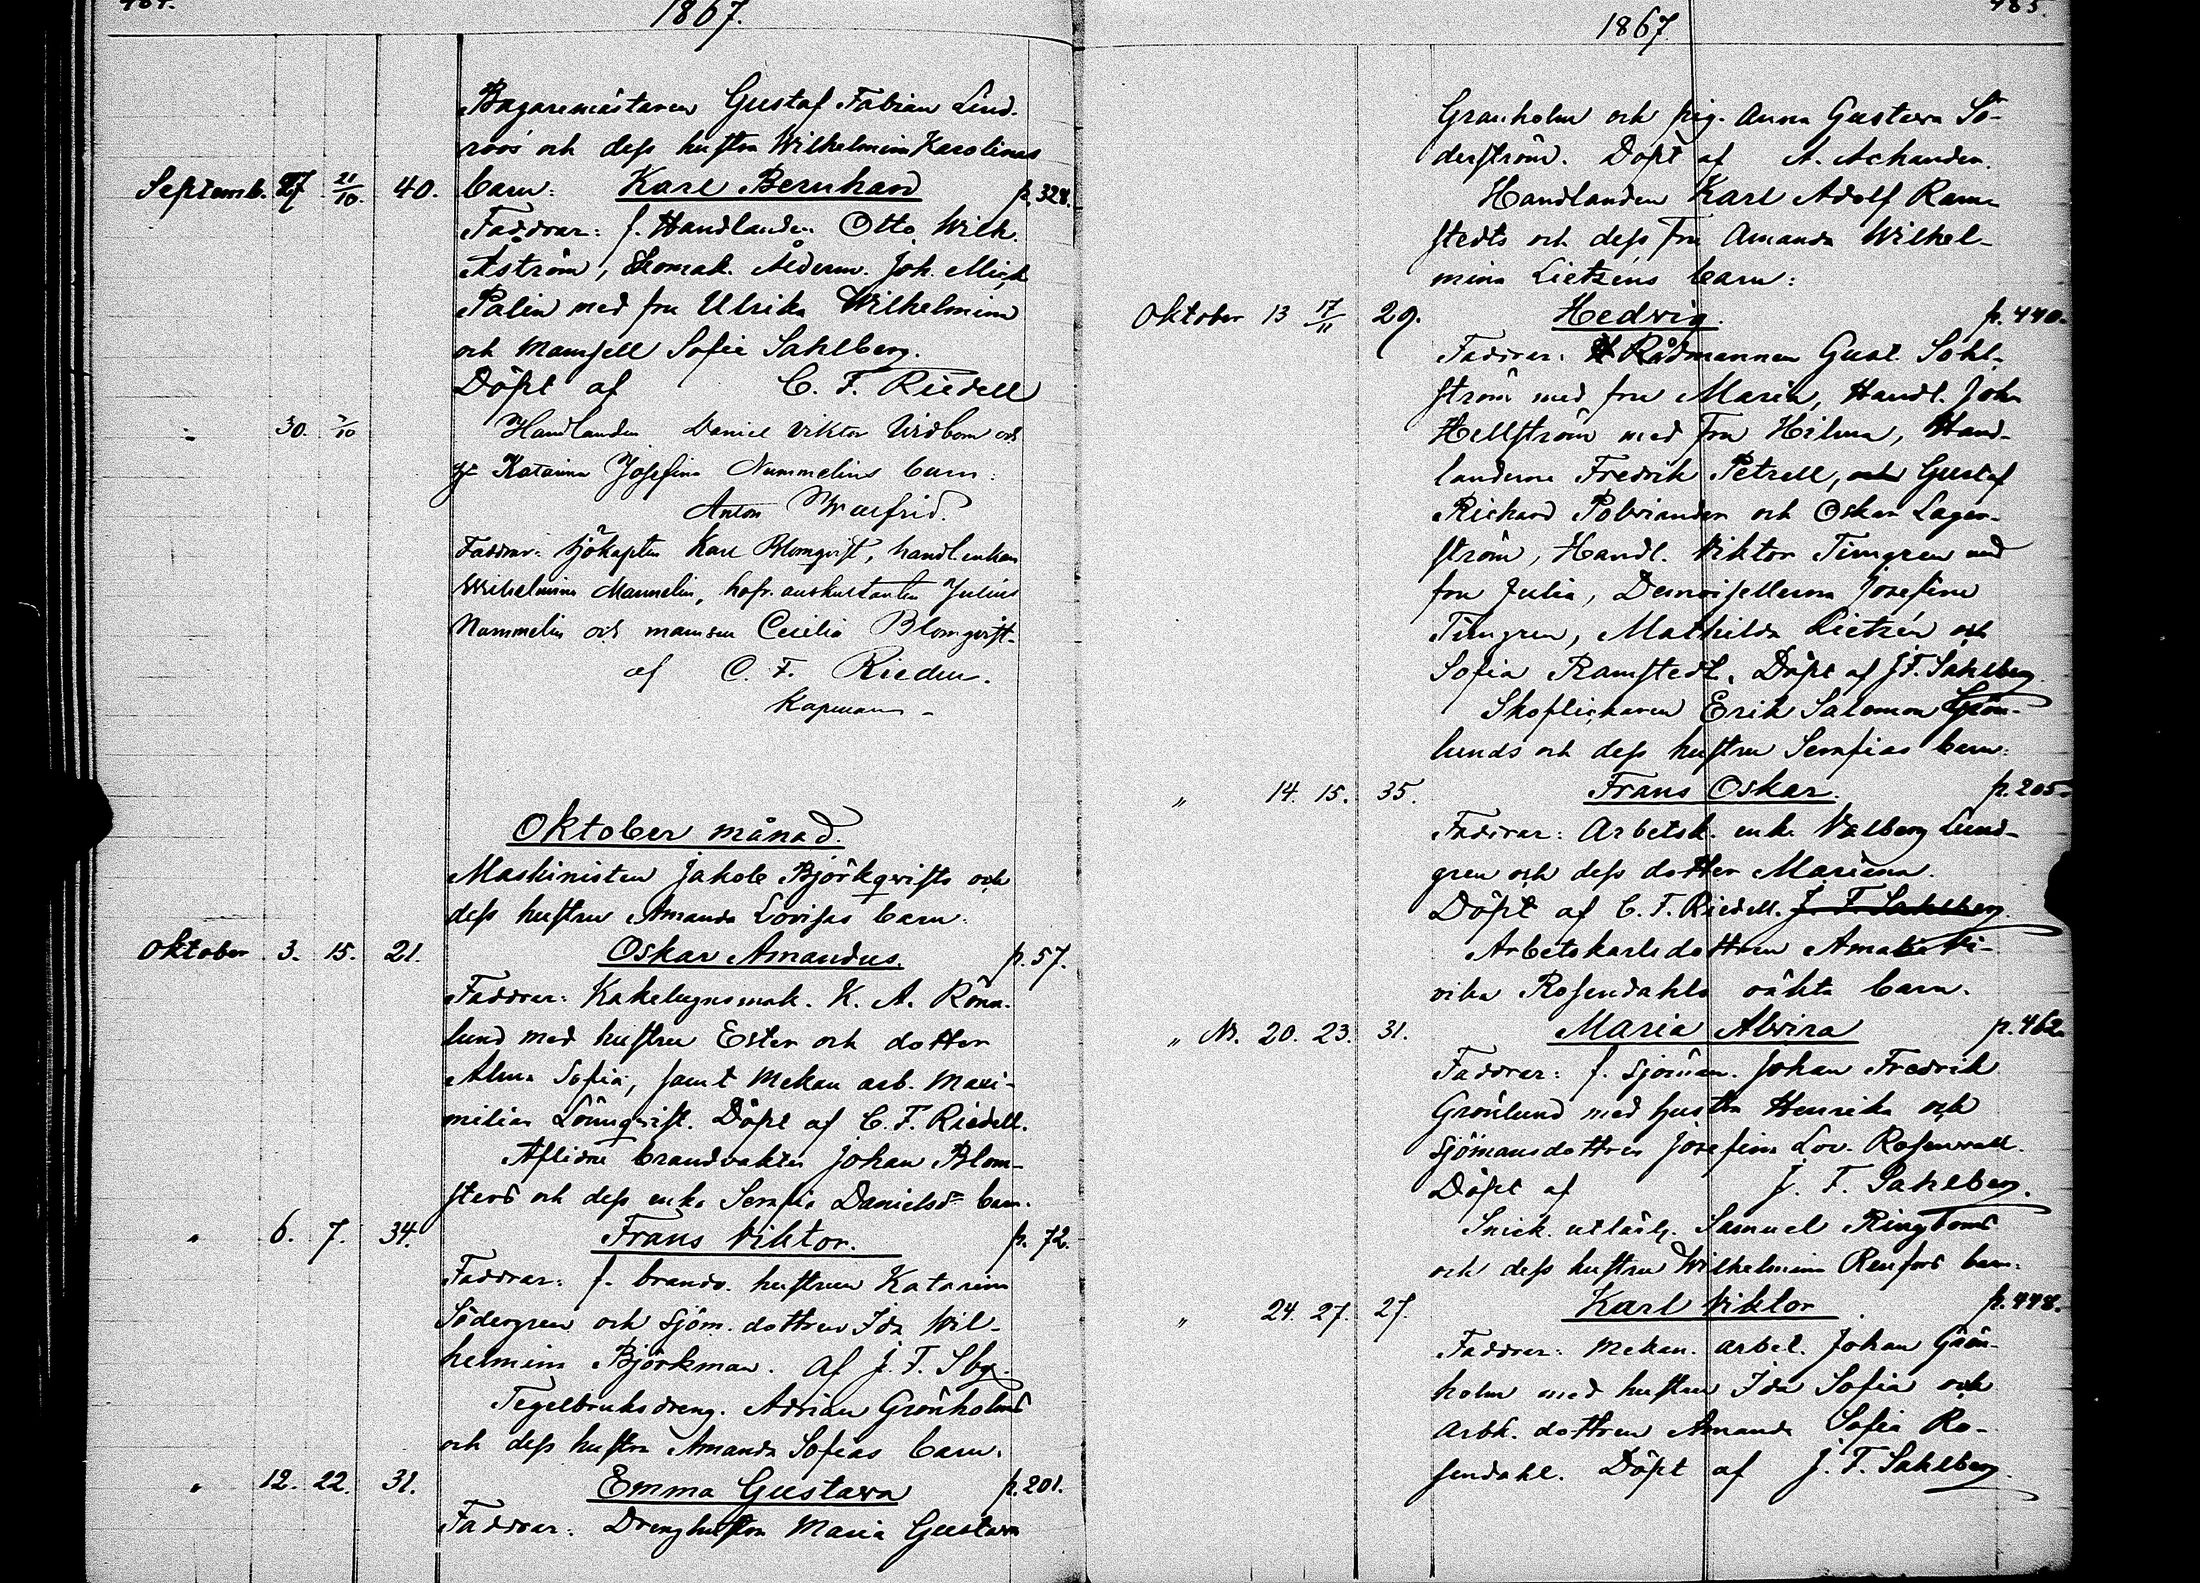 484.
1867.
Bagaremästaren Gustaf Fabian Lind-
roos och dess hustru Wilhelmina Karolinas
Septemb. 27 21/10. 40. barn: Karl Bernhard p. 328.
Faddrar: f. Handlanden Otto Wilh.
Åström, Skomak. Ålderm. Joh. Mich
Palin med fru Ulrika Wilhelmina
och Mamsell Sofie Sahlberg.
Döpt af C. F. Riedell
" 30. 7/10 Handlanden Daniel Viktor Widbom och
Katarina Josefina Nummelins barn:
Anton Walfrid.
Faddrar: Sjökapten Karl Blomqvist, handl. enkan
Wilhelmina Mannelin, hofr. auskultanten Julius
Nummelin och mamsell Cecilia Blomqvist
af C. F. Riedell.
Kapellan
Oktober månad.
Maskinisten Jakob Björkqvists och
dess hustru Amanda Lovisas barn:
Oktober 3. 15. 21. Oskar Amandus. p. 57.
Faddrar: Kakelugnsmak. K. A. Rönn-
lund med hustru Ester och dotter
Alma Sofia, samt Mekan. arb. Maxi-
milian Lönnqvist. Döpt af C. F. Riedell.
Aflidne brandvakten Johan Blom-
sters och dess enka Serafia Danielsdr barn.
" 6. 7. 34. Frans Viktor. p. 72.
Faddrar: f. brandv. hustrun Katarina
Södergren och sjöm. dottren Ida Wil-
helmina Björkman. Af J. F. Sbg.
Tegelbruksdreng. Adrian Grönholms
och dess hustru Amanda Sofias barn.
" 12. 22. 31. Emma Gustava p. 201.
Faddrar: Drenghustru Maria Gustava
485.
1867.
Granholm och pig. Anna Gustava Sö-
derström. Döpt af A. Achander.
Handlanden Karl Adolf Ram-
stedts och dess Fru Amanda Wilhel-
mina Lietzéns barn:
Oktober 13 17/11 29. Hedvig. p. 440.
Faddrar: Rådmannen Gust. Sohl-
ström med fru Maria, Handl. Joh.
Hellström med Fru Hilma, Hand-
landerne Fredrik Petrell, och Gustaf
Richard Polviander och Oskar Lager-
ström, Handl. Viktor Timgren med
fru Julia, Demoisellerna Josefine
Timgren, Mathilda Lietzén och
Sofia Ramstedt. Döpt af J. F. Sahlberg.
Skoflickaren Erik Salomon Grön-
lunds och dess hustru Serafias barn:
" 14. 15. 35. Frans Oskar. p. 205.
Faddrar: Arbetsk. enk. Valberg Lund-
gren och dess dotter Mariana.
Döpt af C. F. Riedell. J. F. Sahlberg.
Arbetskarlsdottren Amalia Vi-
vika Rosendahls oäkta barn.
" N. 20. 23. 31. Maria Alvina p. 462.
Faddrar: f. Sjöman. Johan Fredrik
Grönlund med hustru Henrika och
Sjömansdottren Josefina Lov. Rosenvall.
Döpt af J. F. Sahlberg.
Snick. utlärl. Samuel Ringboms
och dess hustru Wilhelmina Renfors barn:
" 24. 27. 27. Karl Viktor p. 448.
Faddrar: Mekan. arbet. Johan Grön-
holm med hustru Ida Sofia och
Arbk. dottren Amanda Sofia Ro-
sendahl. Döpt af J. F. Sahlberg.